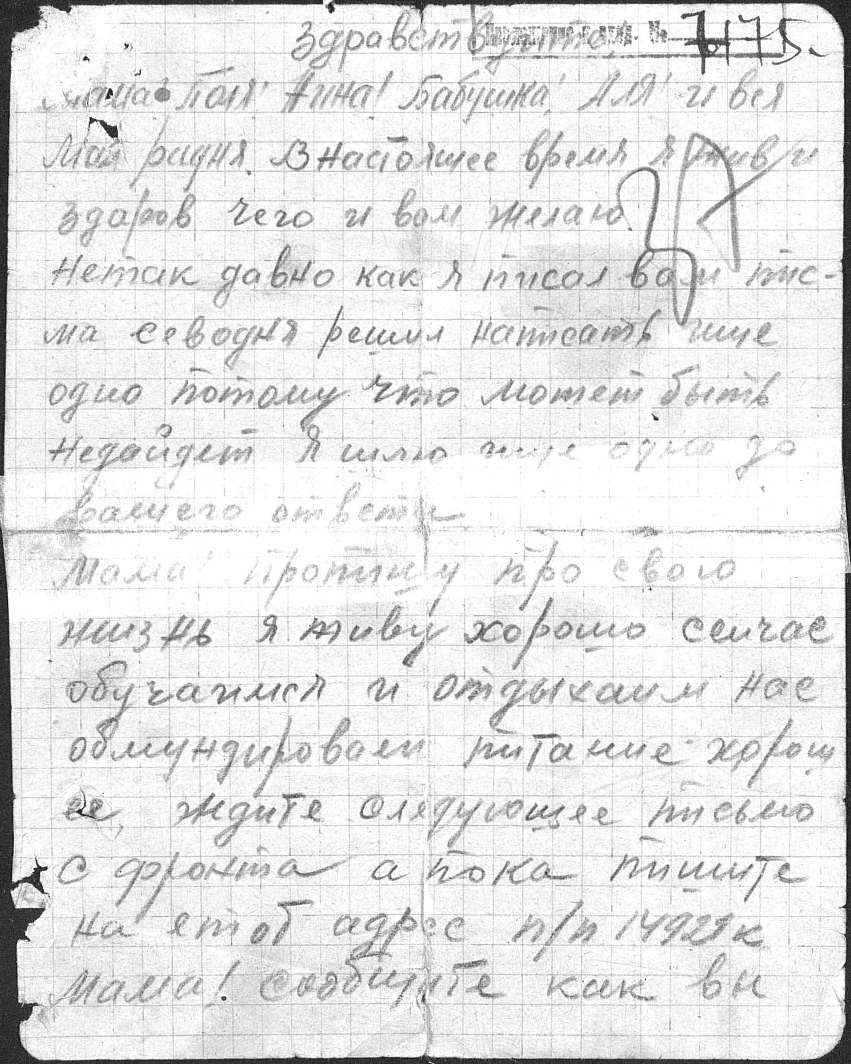 Здравствуйте
7175.
Мама! Поля! Анна! Бабушка! Аля! и вся
Моя радня. В настоящее время я жив и
здоров чего и вам желаю.
Нетак давно как я писал вам пис-
ма севодня решил написать ище
одно потому что может быть
недайдет я шлю ище одно до
вашего ответа
Мама! Пропишу про свою
жизнь я живу хорошо сейчас
обучаимся и отдыхаим нас
обмундировали питание хорош
ее ждите следующее письмо
с фронта а пока пишите
на етот адрес п/п 14921к
Мама! сообщите как вы